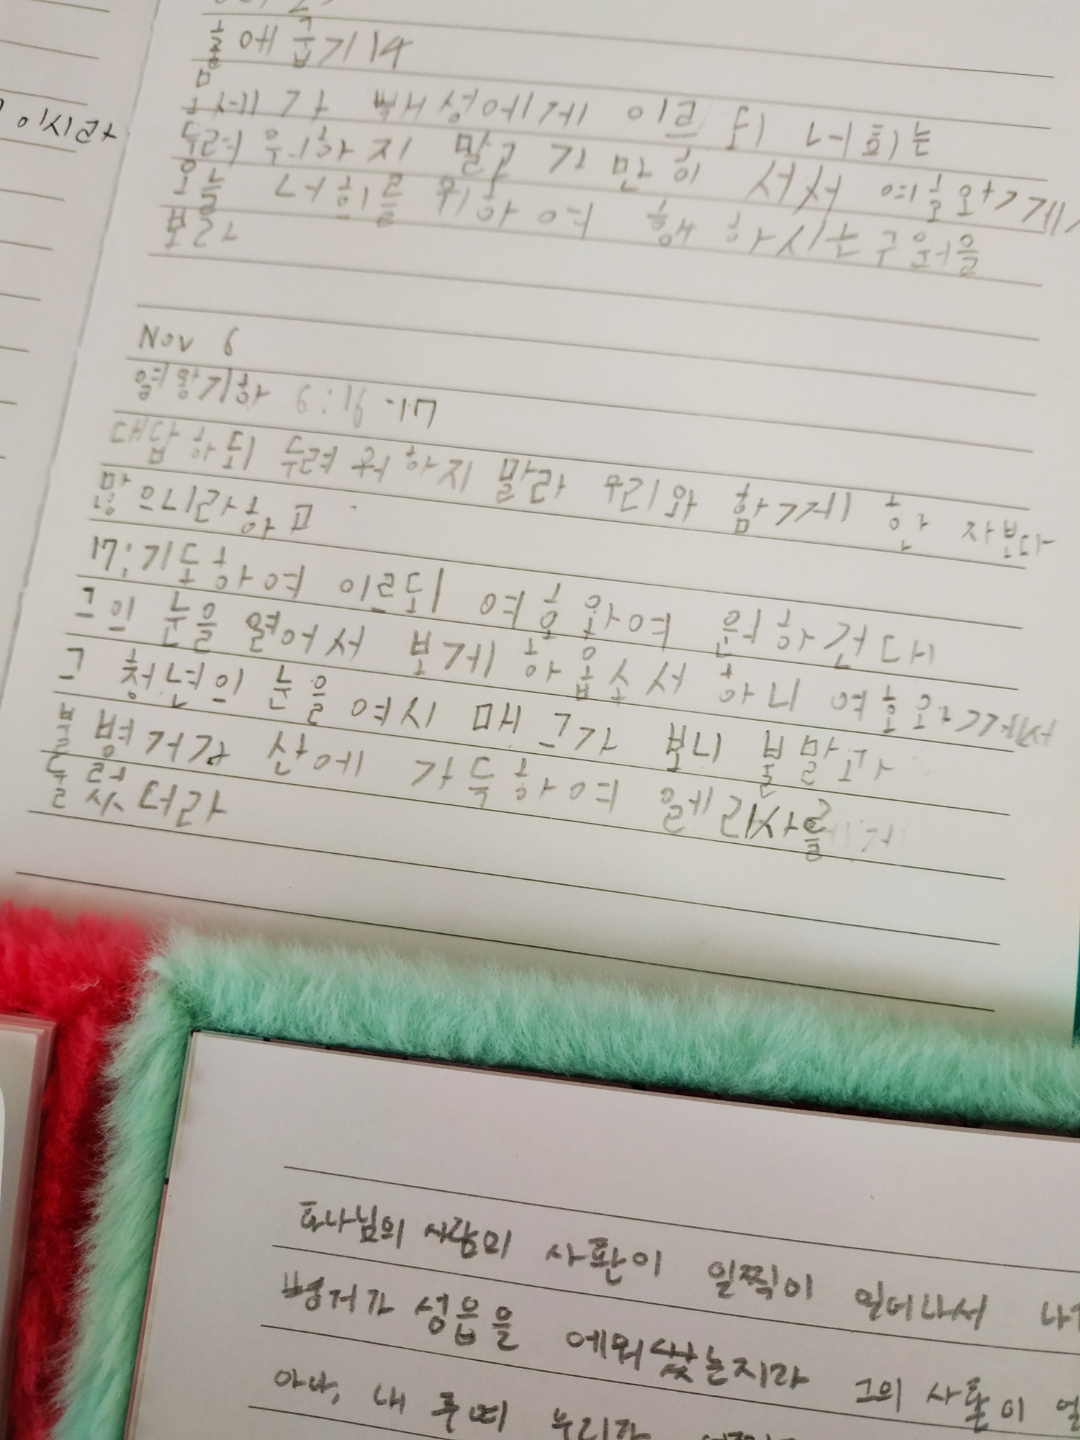 이시라
출애굽기 14
모세가 백성에게 이르되 너희는
두려워하지 말고 가만히 서서 여호와께서
오늘 너희를 위하여 행하시는 구원을
보라
Nov 6
열왕기하 6:16-17
대답하되 두려워하지 말라 우리와 함께 한 자보다
많으니라 하고
17:기도하여 이르되 여호와여 원하건대
그의 눈을 열어서 보게 하옵소서 하니 여호와께서
그 청년의 눈을 여시매 그가 보니 불말과
불병거가 산에 가득하여 엘리사를
둘렀더라
하나님의 사람의 사환이 일찍이 일어나서
병거가 성읍을 에워쌌는지라 그의 사환이
아아, 내 주여 우리가